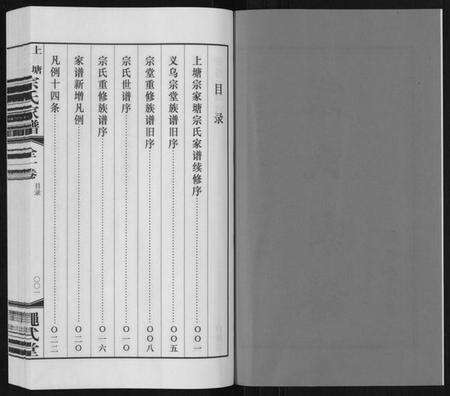 目录
上塘宗家塘宗氏家谱续修序……〇〇一
义乌宗堂族谱旧序……〇〇五
宗堂重修族谱旧序……〇〇八
宗氏世谱序……〇一〇
宗氏重修族谱序……〇一六
家谱新增凡例……〇二〇
凡例十四条……〇二二
上塘宗氏家谱
全一卷
目录
〇〇一
绳武堂